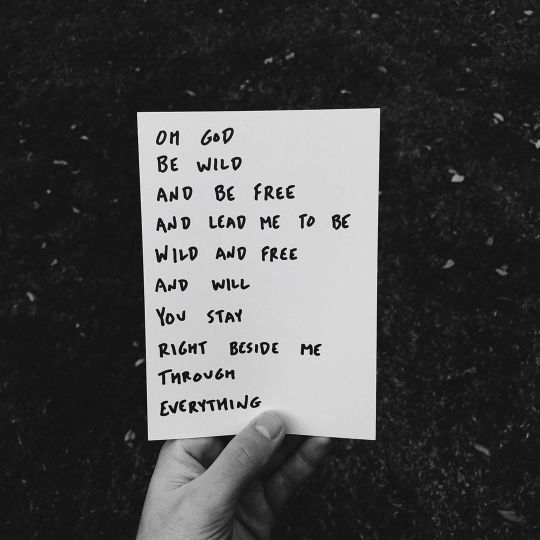 OH GOD
BE WILD
AND BE FREE
AND LEAD ME TO BE
WILD AND FREE
AND WILL
YOU STAY
RIGHT BESIDE ME
THROUGH
EVERYTHING